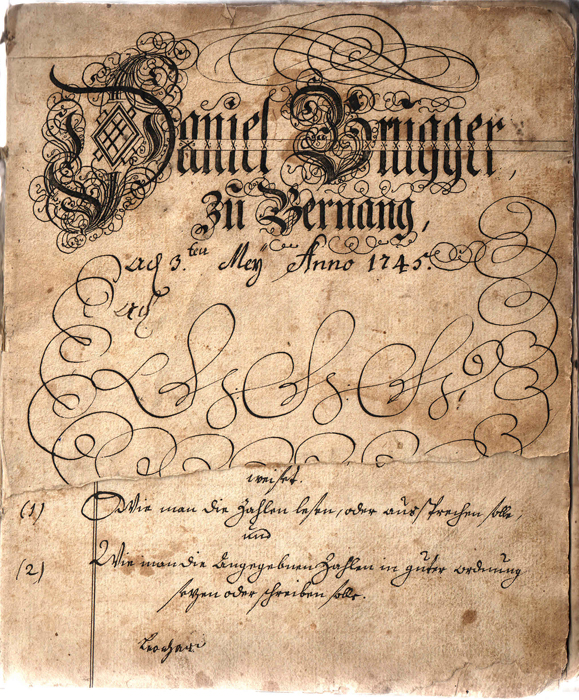 Daniel Brugger,
zů Bernang,
3.ten Meÿ Anno 1745.
weiset.
(1) Wie man die Zahlen lesen, oder aussprechen solle,
und
(2) Wie man die Angegebnen Zahlen in gůter ordnůng
sezen oder schreiben solle.